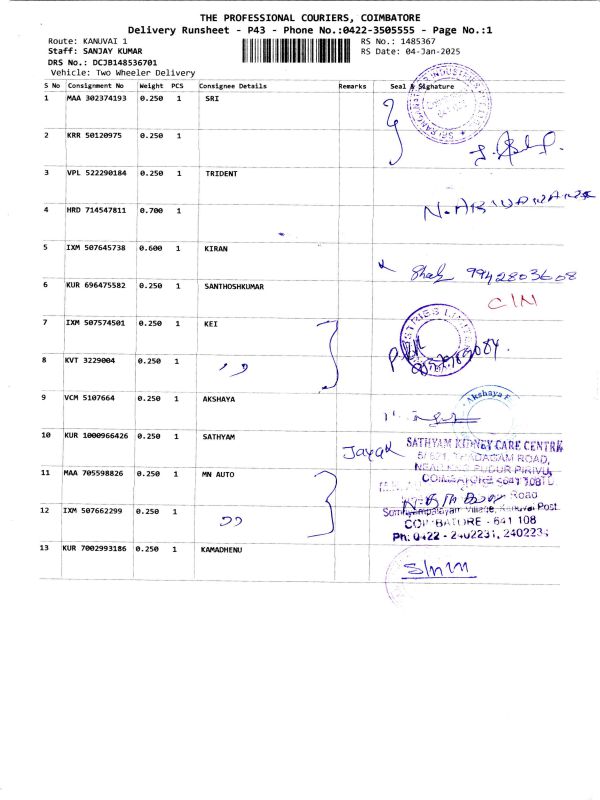 THE PROFESSIONAL COURIERS, COIMBATORE
Delivery Runsheet - P43 - Phone No.:0422-3505555 - Page No.:1
Route: KANUVAI 1 RS No.: 1485367
Staff: SANJAY KUMAR RS Date: 04-Jan-2025
DRS No.: DCJB148536701
Vehicle: Two Wheeler Delivery
S No Consignment No Weight PCS Consignee Details Remarks Seal & Signature
1 MAA 302374193 0.250 1 SRI
2 KRR 50120975 0.250 1
3 VPL 522290184 0.250 1 TRIDENT
4 HRD 714547811 0.700 1
5 IXM 507645738 0.600 1 KIRAN
9942803608
6 KUR 696475582 0.250 1 SANTHOSHKUMAR
7 IXM 507574501 0.250 1 KEI
8 KVT 3229004 0.250 1
9 VCM 5107664 0.250 1 AKSHAYA
Akshaya
10 KUR 1000966426 0.250 1 SATHYAM
SATHYAM KIDNEY CARE CENTRE
THADAGAM ROAD,
PUDUR PIRIVU,
11 MAA 705598826 0.250 1 MN AUTO
COIMBATORE
Road
12 IXM 507662299 0.250 1
Somayampalayam Village, Kanuvai Post
COIMBATORE - 641 108
Ph: 0422 - 2402231, 240223
13 KUR 7002993186 0.250 1 KAMADHENU